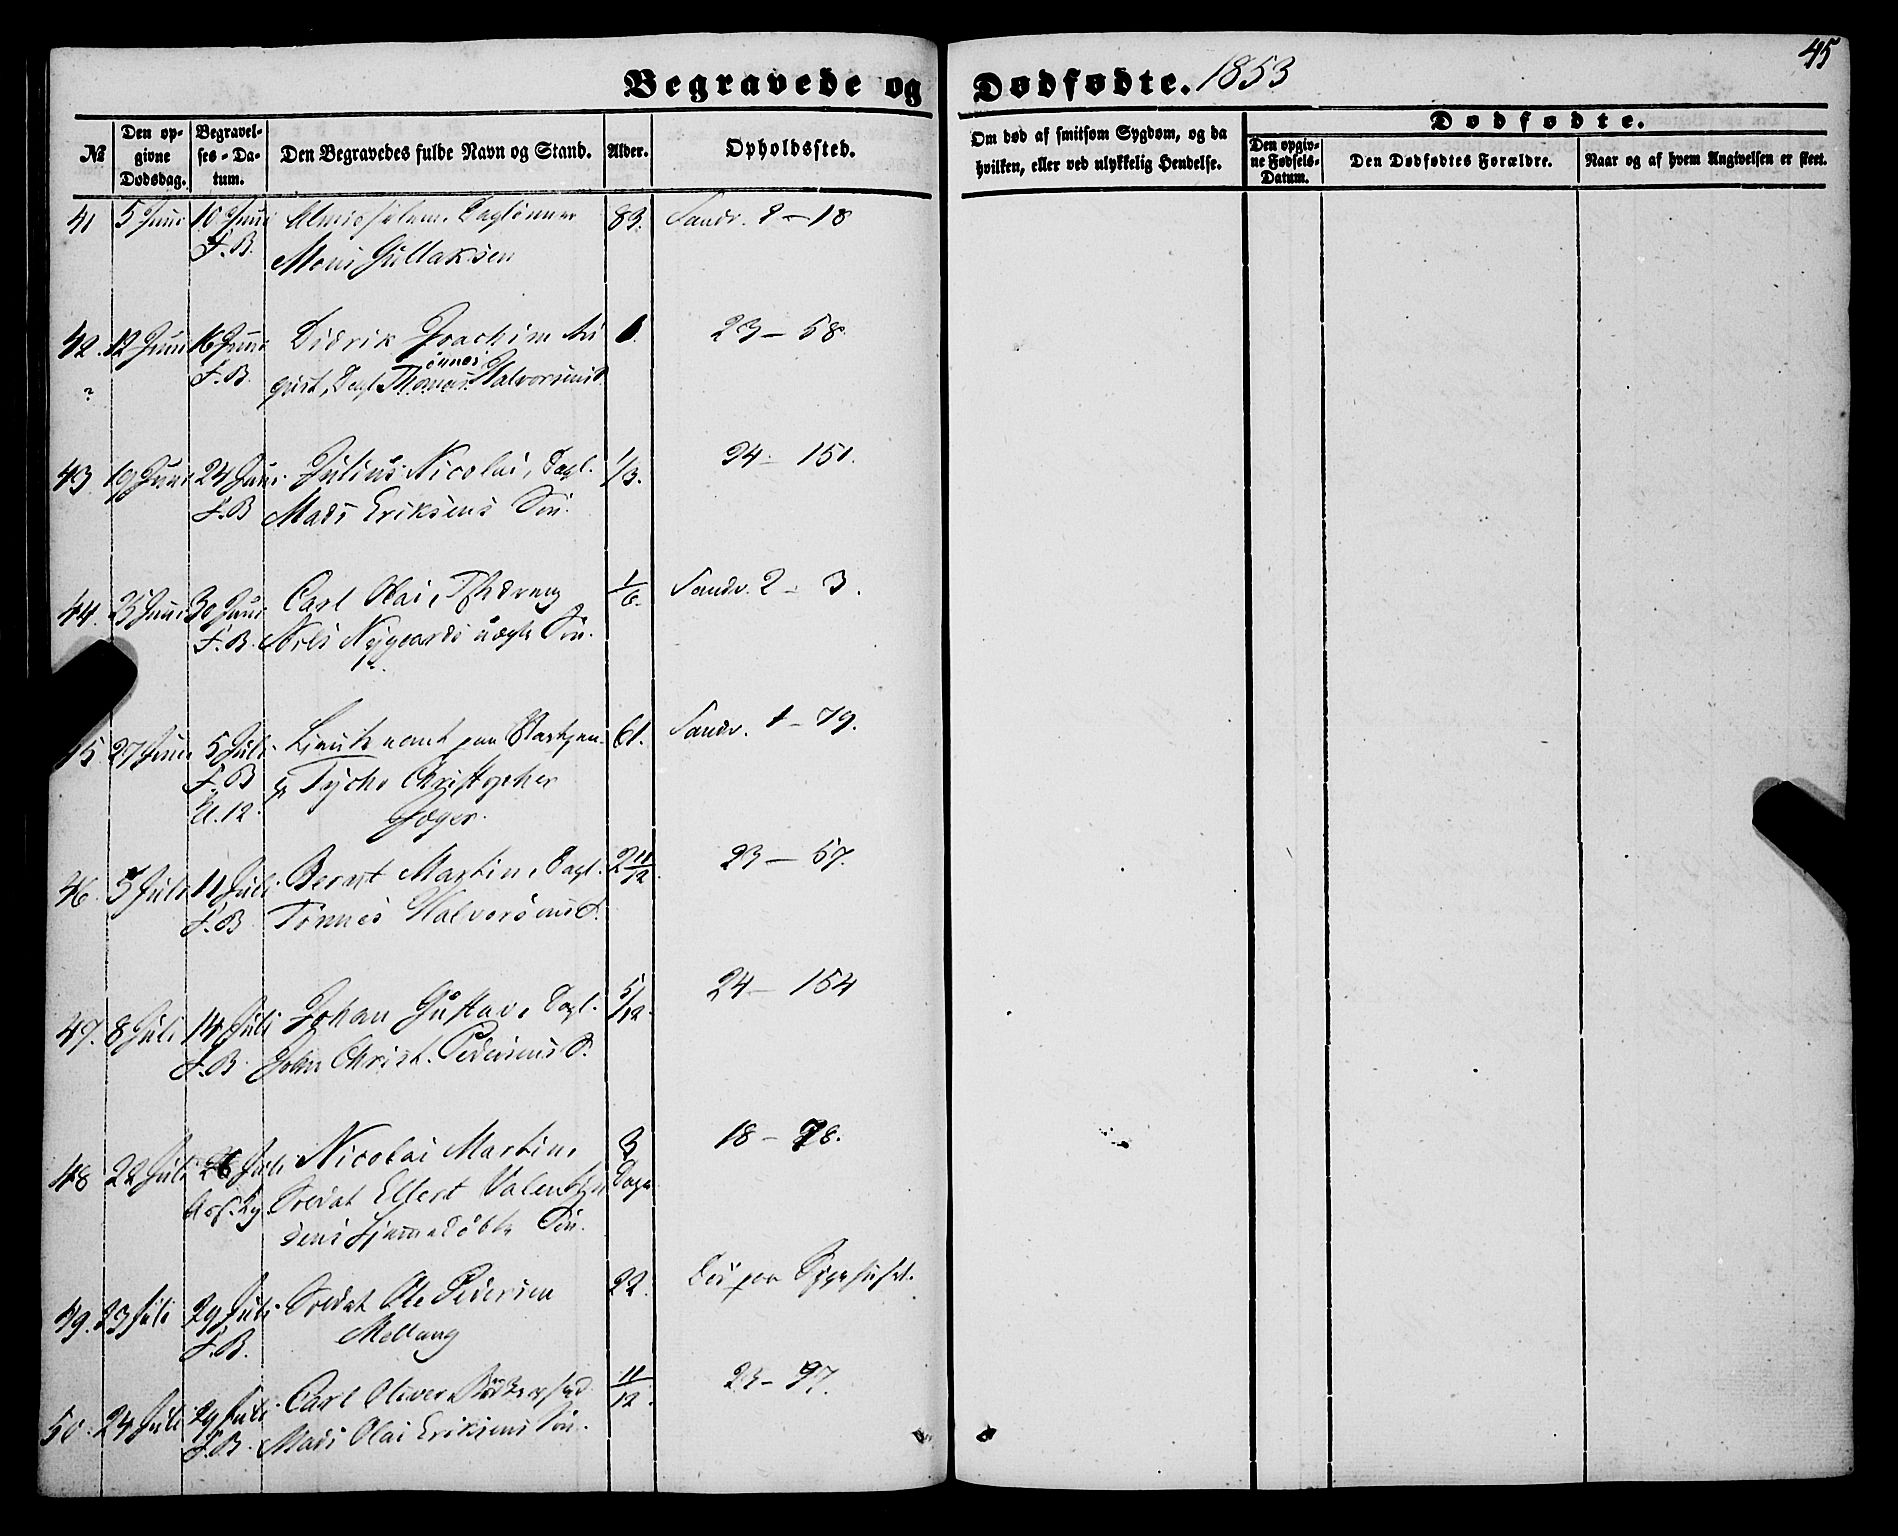 Begravede og Dødfødte. 1853
45
№
Den opgivne Dødsdag.
Begravelses-Datum.
Den Begravedes fulde Navn og Stand.
Alder.
Opholdssted.
Om død af smitsom Sygdom, og da hvilken, eller ved ulykkelig Hendelse.
Dødfødte.
Den opgivne Fødsels-Datum.
Den Dødfødtes Forældre.
Naar og af hvem Angivelsen er skeet.
41 5 Juni 10 Juni Almisselem, Daglønner 83. Sandv. 2–18
F.B. Mons Gullaksen
42. 12 Juni 16 Juni Didrik Joachim Au 1. 23–58.
F.B. gust, Dagl. Tönnes Halvorsens S.
43. 19 Juni 24 Juni Julius Nicolai, Dagl. 1/3. 24–151.
F.B Mads Eriksens Søn.
44. 25 Juni 30 Juni Carl Olai, 1/6. Sandv. 2–3.
F.B. Nils Nygaards uægte Søn.
45. 27 Juni 5 Juli Lieutenant paa 61. Sandv. 1–79.
F.B Tycho Christopher
Kl. 12. Jæger.
46. 5 Juli 11 Juli Bernt Martin, Dagl. 2 11/12. 23–57.
F.B Tönnes Halvorsens S.
47. 8 Juli 14 Juli Johan Gustav, Dagl. 5/12. 24–154
F.B John Christ. Pedersens S.
48 22 Juli 26 Juli Nicolai Martin, 3 18–78.
Soldat Ellert Valentin Dage
sens hjemmedøbte Søn.
49. 23 Juli 29 Juli Soldat Ole Pedersen 22. Død paa Sygehuset.
F.B. Melvang
50. 24 Juli 29 Juli Carl Oliver 11/12. 23–97.
F.B. Mads Olai Eriksens Søn.